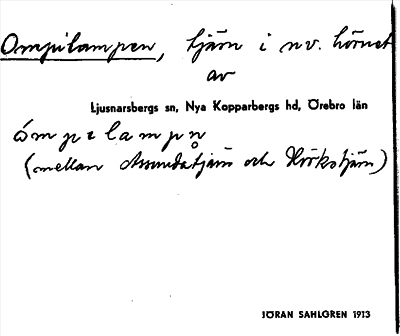 Ompilampen, tjärn i nv. hörnet
av
Ljusnarsbergs sn, Nya Kopparbergs hd, Örebro län
ómpɩlampn̥
(mellan och Hörkstjärn)
JÖRAN SAHLGREN 1913